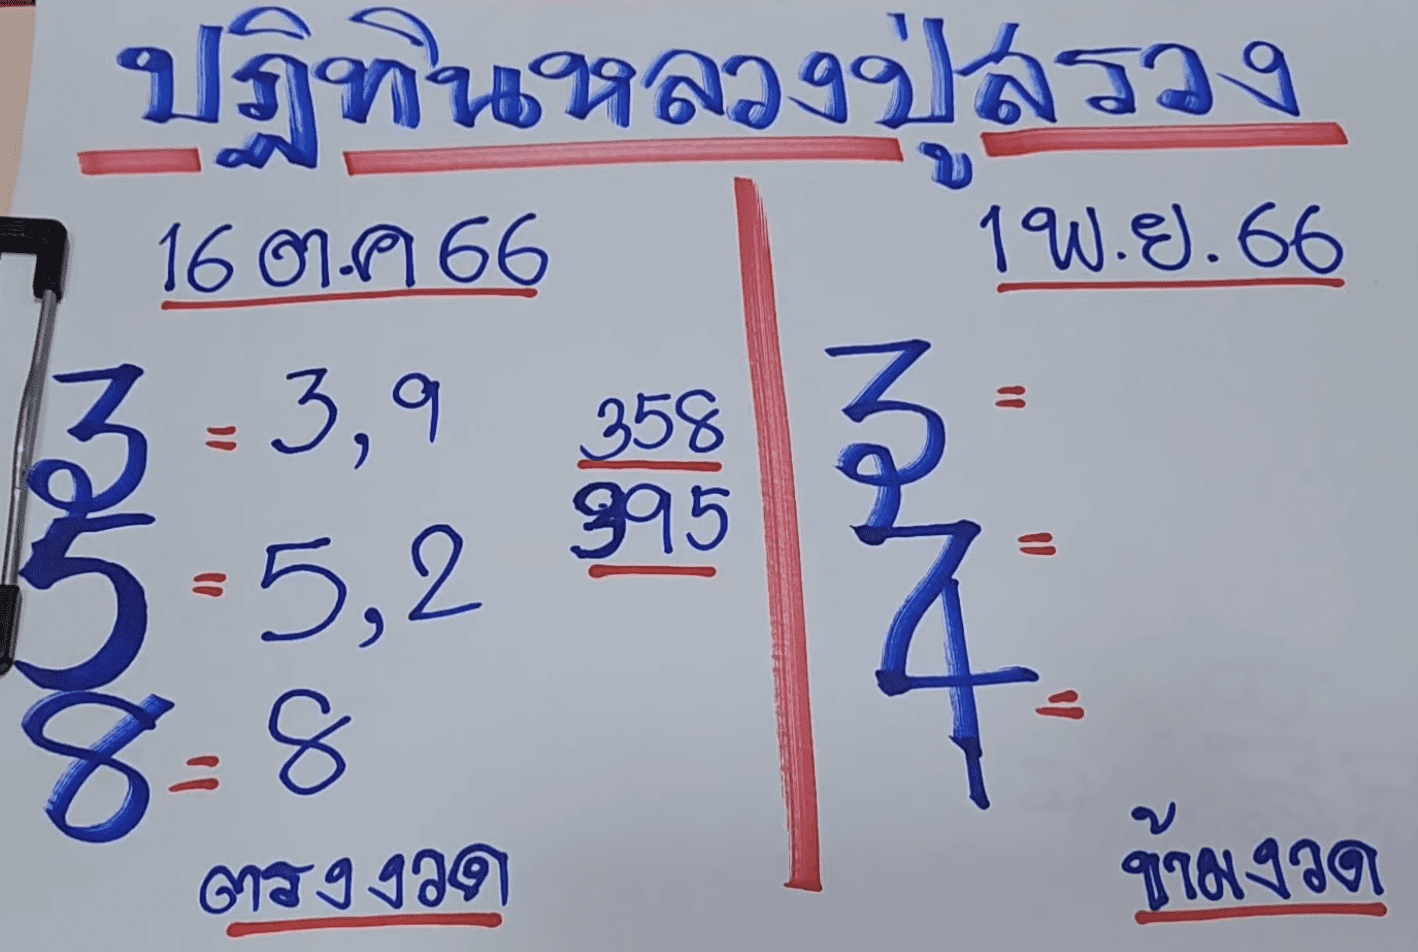 ปฏิทินหลวงปู่สรวง
16 ต.ค 66
3 = 3, 9
5 = 5, 2
8 = 8
358
395
ตรงงวด
1 พ.ย. 66
3 =
=
4 =
ข้ามงวด